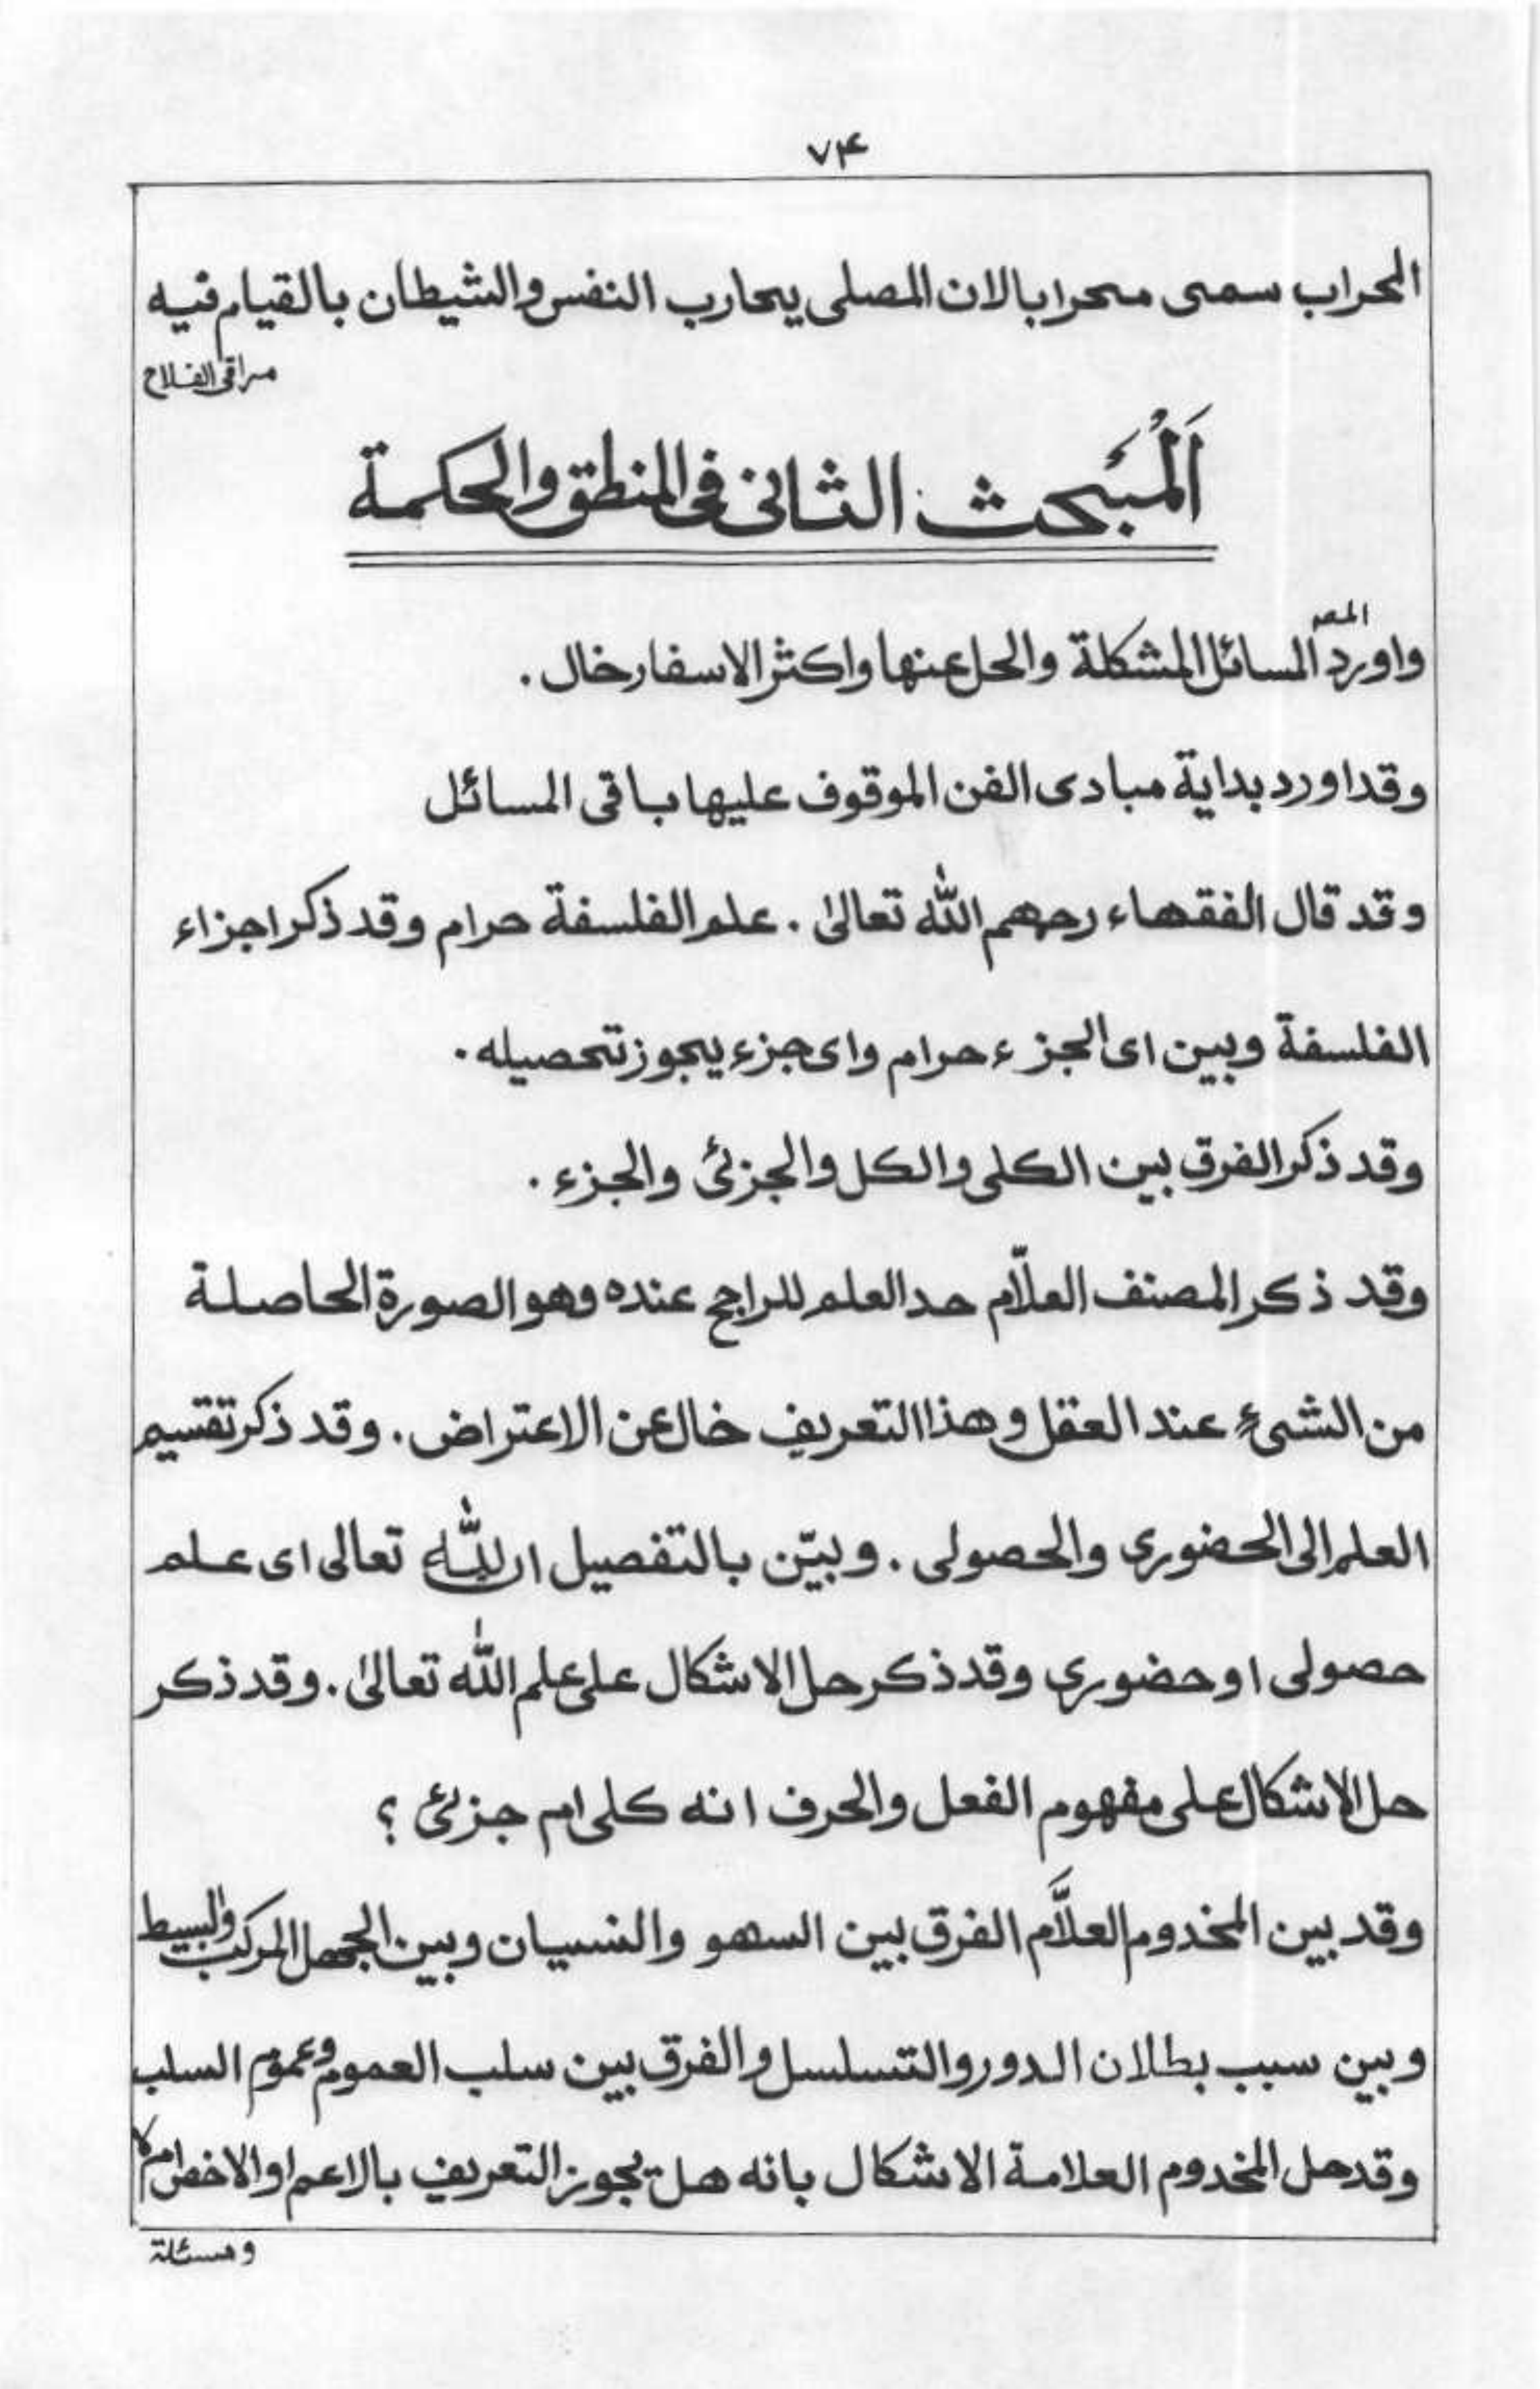 ۷۴
المحراب سمی محرابا لان المصلی یحارب النفس والشیطان بالقیام فیه
مراقی الفلاح
اَلْمَبْحث الثانی فی المنطق والحکمة
المصـ
واورد المسائل المشکلة والحل عنها واکثر الاسفار خال .
وقد اورد بدایة مبادی الفن الموقوف علیها باقی المسائل
وقد قال الفقهاء رحمهم اللّٰه تعالیٰ . علم الفلسفة حرام وقد ذکر اجزاء
الفلسفة وبین ای الجزء حرام وای جزء یجوز تحصیله .
وقد ذکر الفرق بین الکلی والکل والجزئی والجزء .
وقد ذکر المصنف العلّام حد العلم للراجح عنده وهو الصورة الحاصلة
من الشیء عند العقل وهذا التعریف خال عن الاعتراض . وقد ذکر تقسیم
العلم الی الحضوری والحصولی . وبیّن بالتفصیل ان للّٰه تعالی ای علم
حصولی او حضوری وقد ذکر حل الاشکال علی علم اللّٰه تعالیٰ . وقد ذکر
حل الاشکال علی مفهوم الفعل والحرف انه کلی ام جزئی ؟
وقد بین المخدوم العلَّام الفرق بین السهو والنسیان وبین الجهل المرکب والبسیط
وبین سبب بطلان الدور والتسلسل والفرق بین سلب العموم وعموم السلب
وقد حل المخدوم العلامة الاشکال بانه هل یجوز التعریف بالاعم او الاخص ام لا
ومسئلة